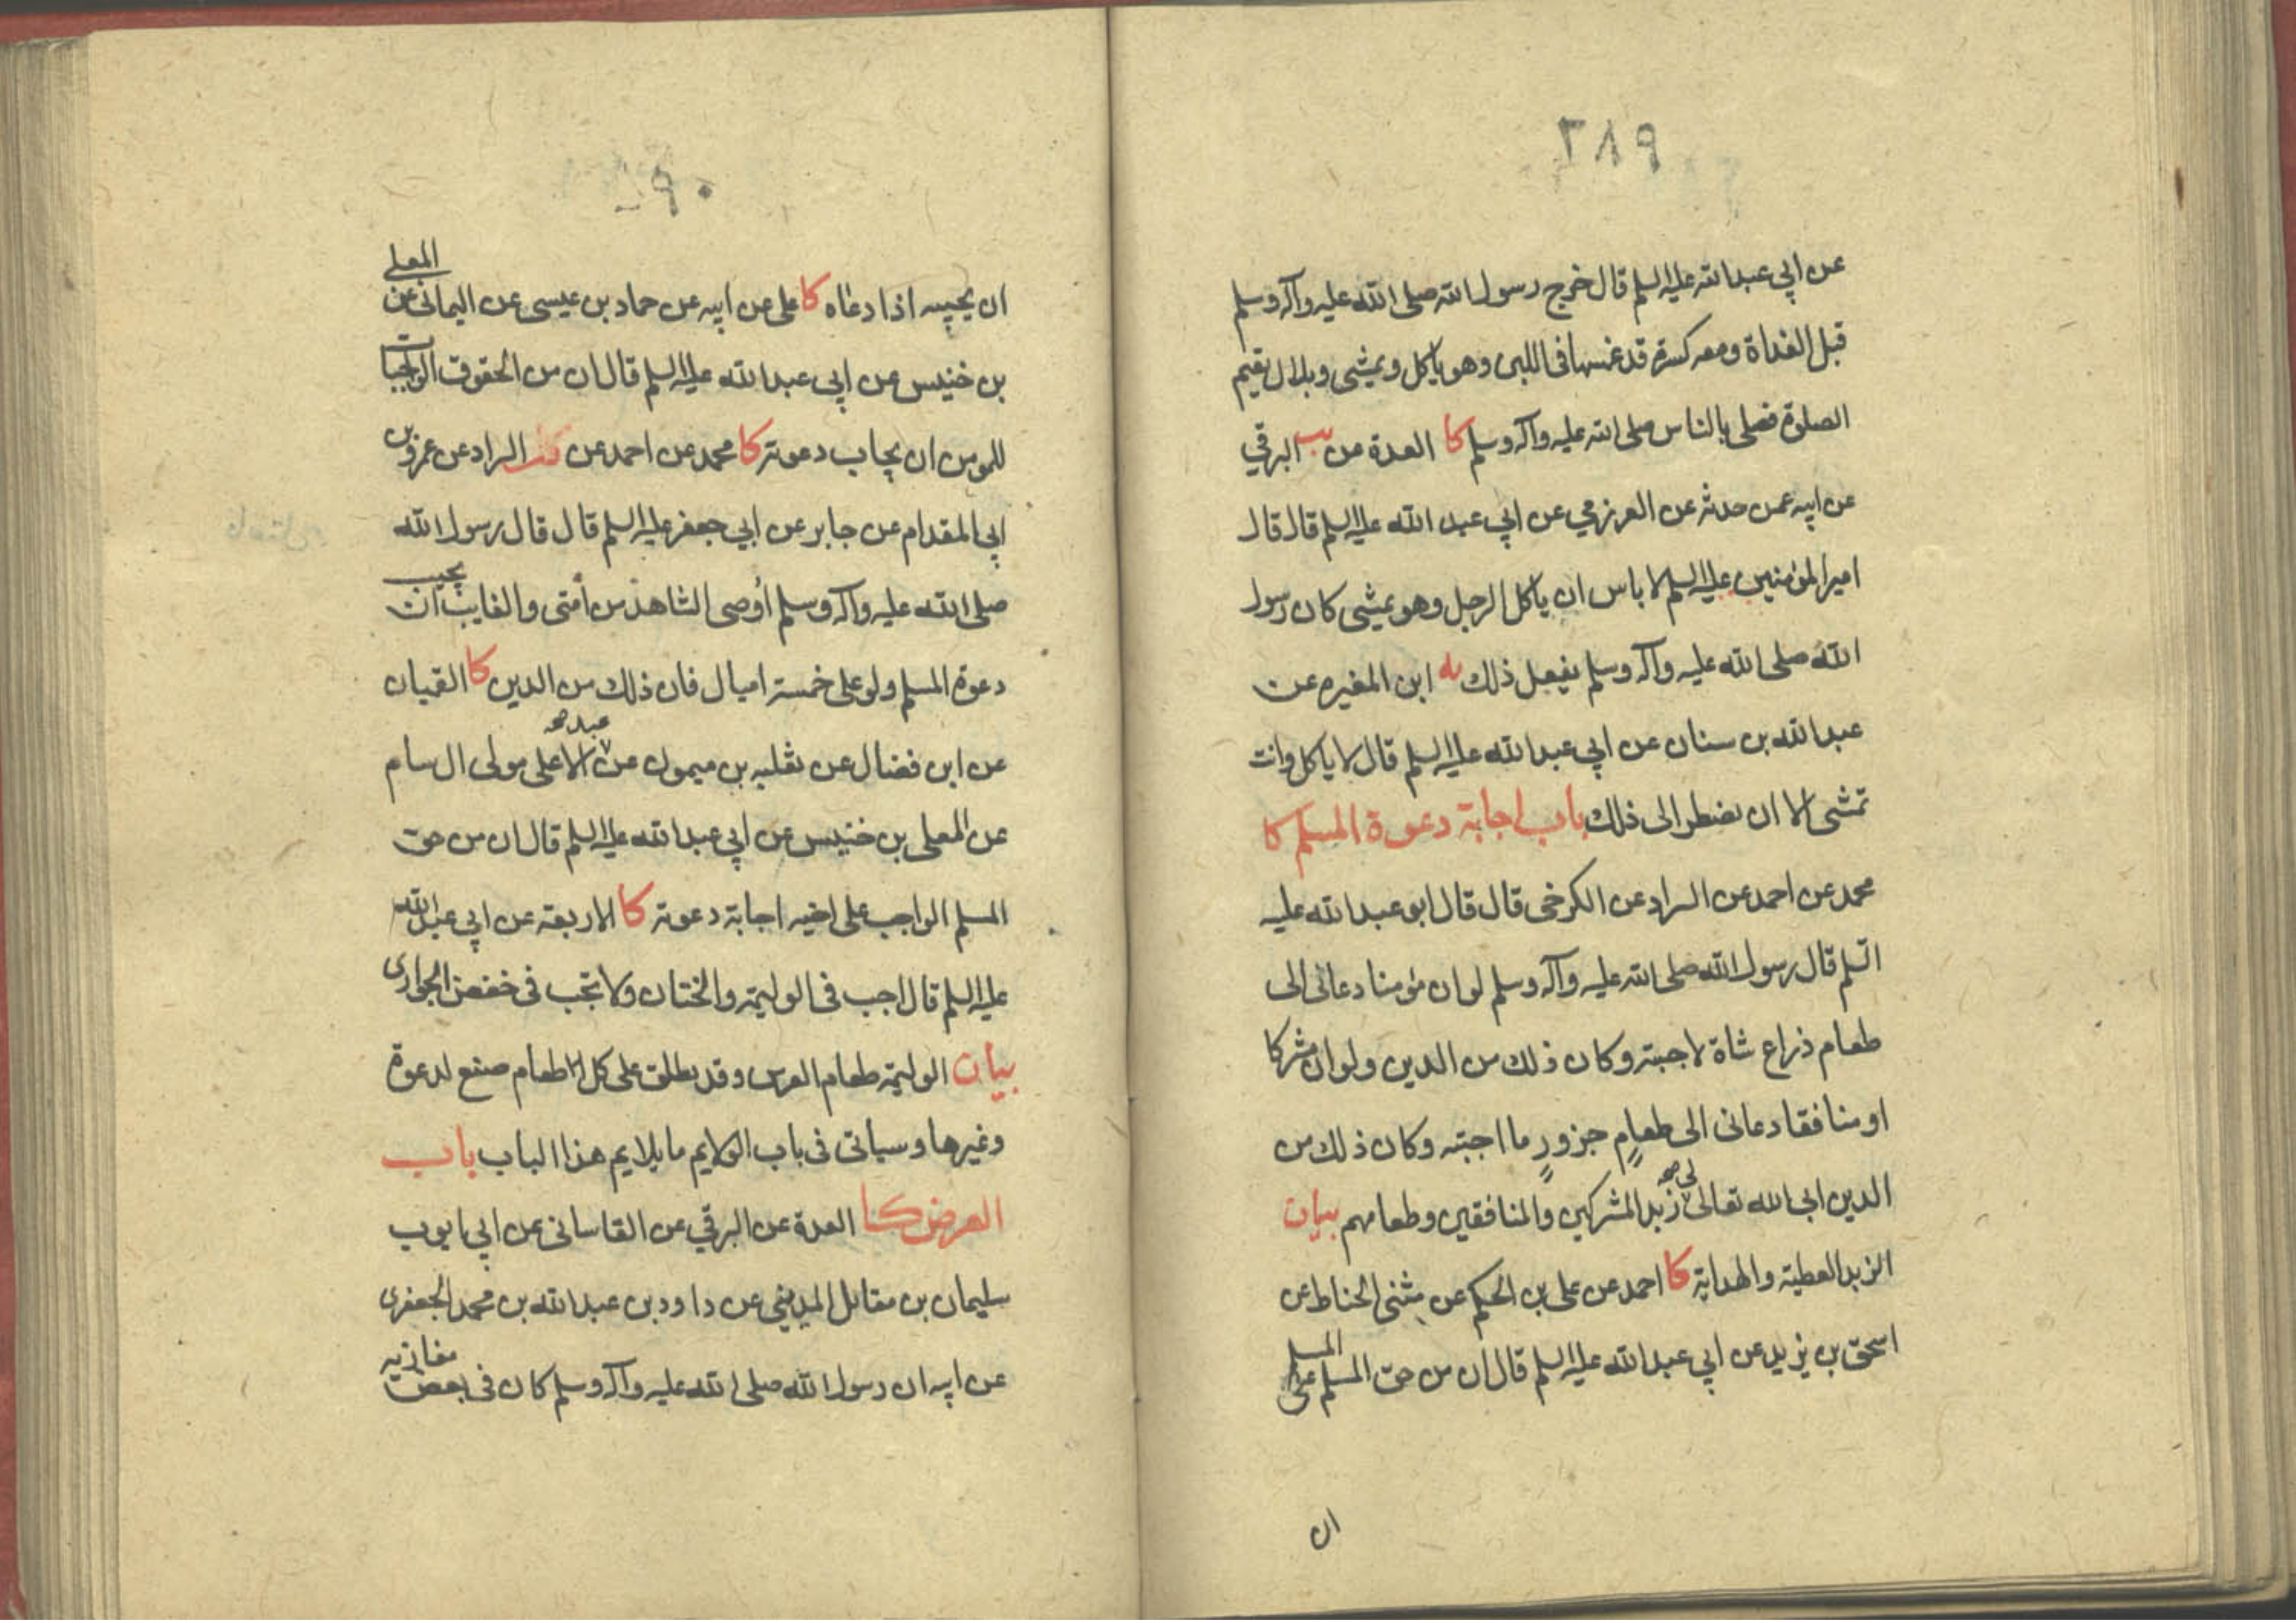 ٢٨٩
عن ابي عبدالله عليه السلم قال خرج رسول الله صلى الله عليه وآله وسلم
قبل الغداة ومعه كسرة قد غمسها فى اللبن وهو ياكل ويمشى وبلال يقيم
الصلوة فصلى بالناس صلى الله عليه وآله وسلم كا العدة عن يب البرقي
عن ابيه عمن حدثه عن العرزمي عن ابي عبد الله عليه السلم قال قال
امير المؤمنين عليه السلم لا باس ان ياكل الرجل وهو يمشى كان رسول
الله صلى الله عليه وآله وسلم يفعل ذلك يه ابن المغيره عن
عبدالله بن سنان عن ابي عبدالله عليه السلم قال لا ياكل وانت
تمشى الا ان تضطر الى ذلك باب اجابة دعوة المسلم كا
محمد عن احمد عن السراد عن الكرخى قال قال ابو عبدالله عليه
السلم قال رسول الله صلى الله عليه وآله وسلم لو ان مؤمنا دعانى الى
طعام ذراع شاة لاجبته وكان ذلك من الدين ولو ان مشركا
او منافقا دعانى الى طعام جزور ما اجبته وكان ذلك من
الدين ابى الله تعالى لى صح زبد المشركين والمنافقين وطعامهم بيان
الزبد العطية والهداية كا احمد عن على بن الحكم عن مثنى الحناط عن
اسحق بن يزيد عن ابي عبدالله عليه السلم قال ان من حق المسلم على المسلم
ان
٢٩٠
ان يجيبه اذا دعاه كا على عن ابيه عن حماد بن عيسى عن اليمانى عن المعلى
بن خنيس عن ابي عبدالله عليه السلم قال ان من الحقوق الواجبات
للمومن ان يجاب دعوته كا محمد عن احمد عن السراد عن عمرو بن
ابي المقدام عن جابر عن ابي جعفر عليه السلم قال قال رسول الله
صلى الله عليه وآله وسلم أوصى الشاهد من أمتى والغايب ان يجيب
دعوة المسلم ولو على خمسة اميال فان ذلك من الدين كا القميان
عن ابن فضال عن ثعلبه بن ميمون عن عبد صح الاعلى مولى ال سام
عن المعلى بن خنيس عن ابي عبدالله عليه السلم قال ان من حق
المسلم الواجب على اخيه اجابة دعوته كا الاربعة عن ابي عبدالله
عليه السلم قال اجب فى الوليمة والختان ولا تجب فى خفض الجوارى
بيان الوليمة طعام العرس وقد يطلق على كل طعام صنع لدعوة
وغيرها وسياتى فى باب الولايم ما يلايم هذا الباب باب
العرض كا العدة عن البرقي عن القاسانى عن ابي ايوب
سليمان بن مقاتل المدينى عن داود بن عبدالله بن محمد الجعفرى
عن ابيه ان رسول الله صلى الله عليه وآله وسلم كان فى بعض مغازيه